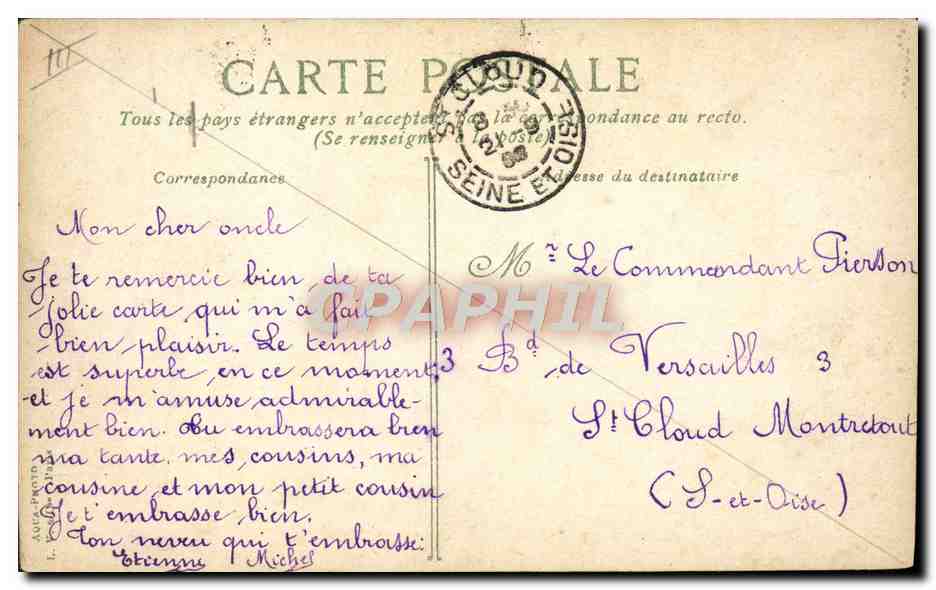 CARTE POSTALE
Tous les pays étrangers n'acceptent pas la correspondance au recto.
(Se renseigner à la poste)
Correspondance
Adresse du destinataire
ST CLOUD
SEINE ET OISE
Mon cher oncle
Je te remercie bien de ta
jolie carte qui m'a fait
bien plaisir. Le temps
est superbe en ce moment
et je m'amuse admirable-
ment bien. Tu embrassera bien
ma tante, mes cousins, ma
cousine et mon petit cousin
Je t'embrasse bien.
Ton neveu qui t'embrasse:
Etienne Michel
Mr Le Commandant Pierson
3 Bd de Versailles 3
St Cloud Montretout
(S-et-Oise)
CPAPHIL
AQUA-PHOTO